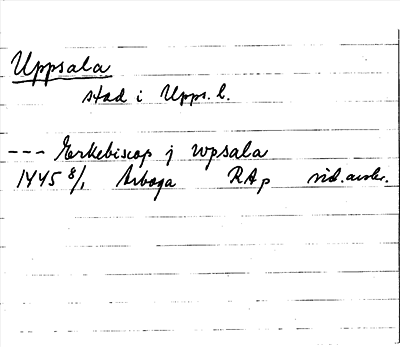 Uppsala
stad i Upps. l.
--- Erkebiscop j wpsala
1445 8/1 Arboga RAp vid. avskr.